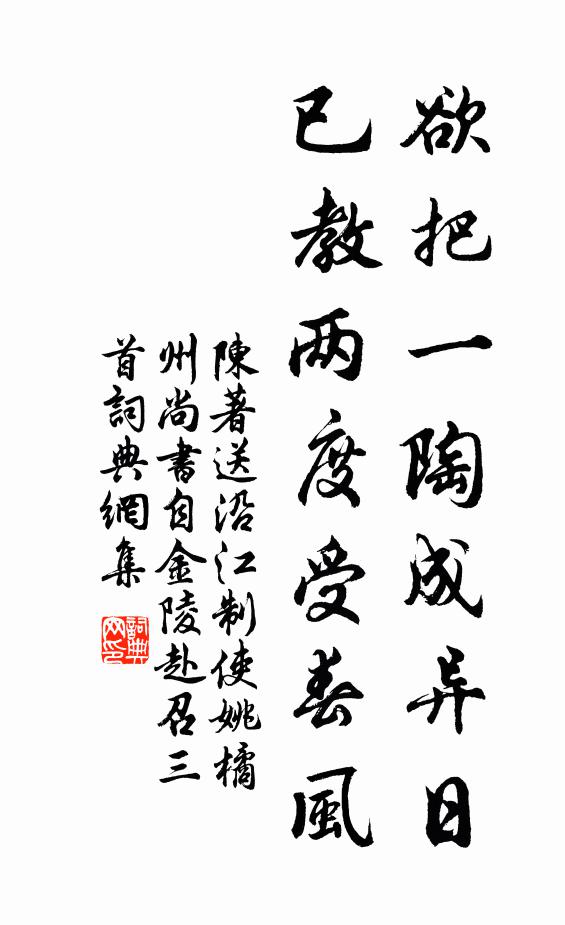 欲把一陶成异日
已教两度受春風
陳著送沿江制使姚橘
州尚書自金陵赴召三
首詞典網集
詞典
网印